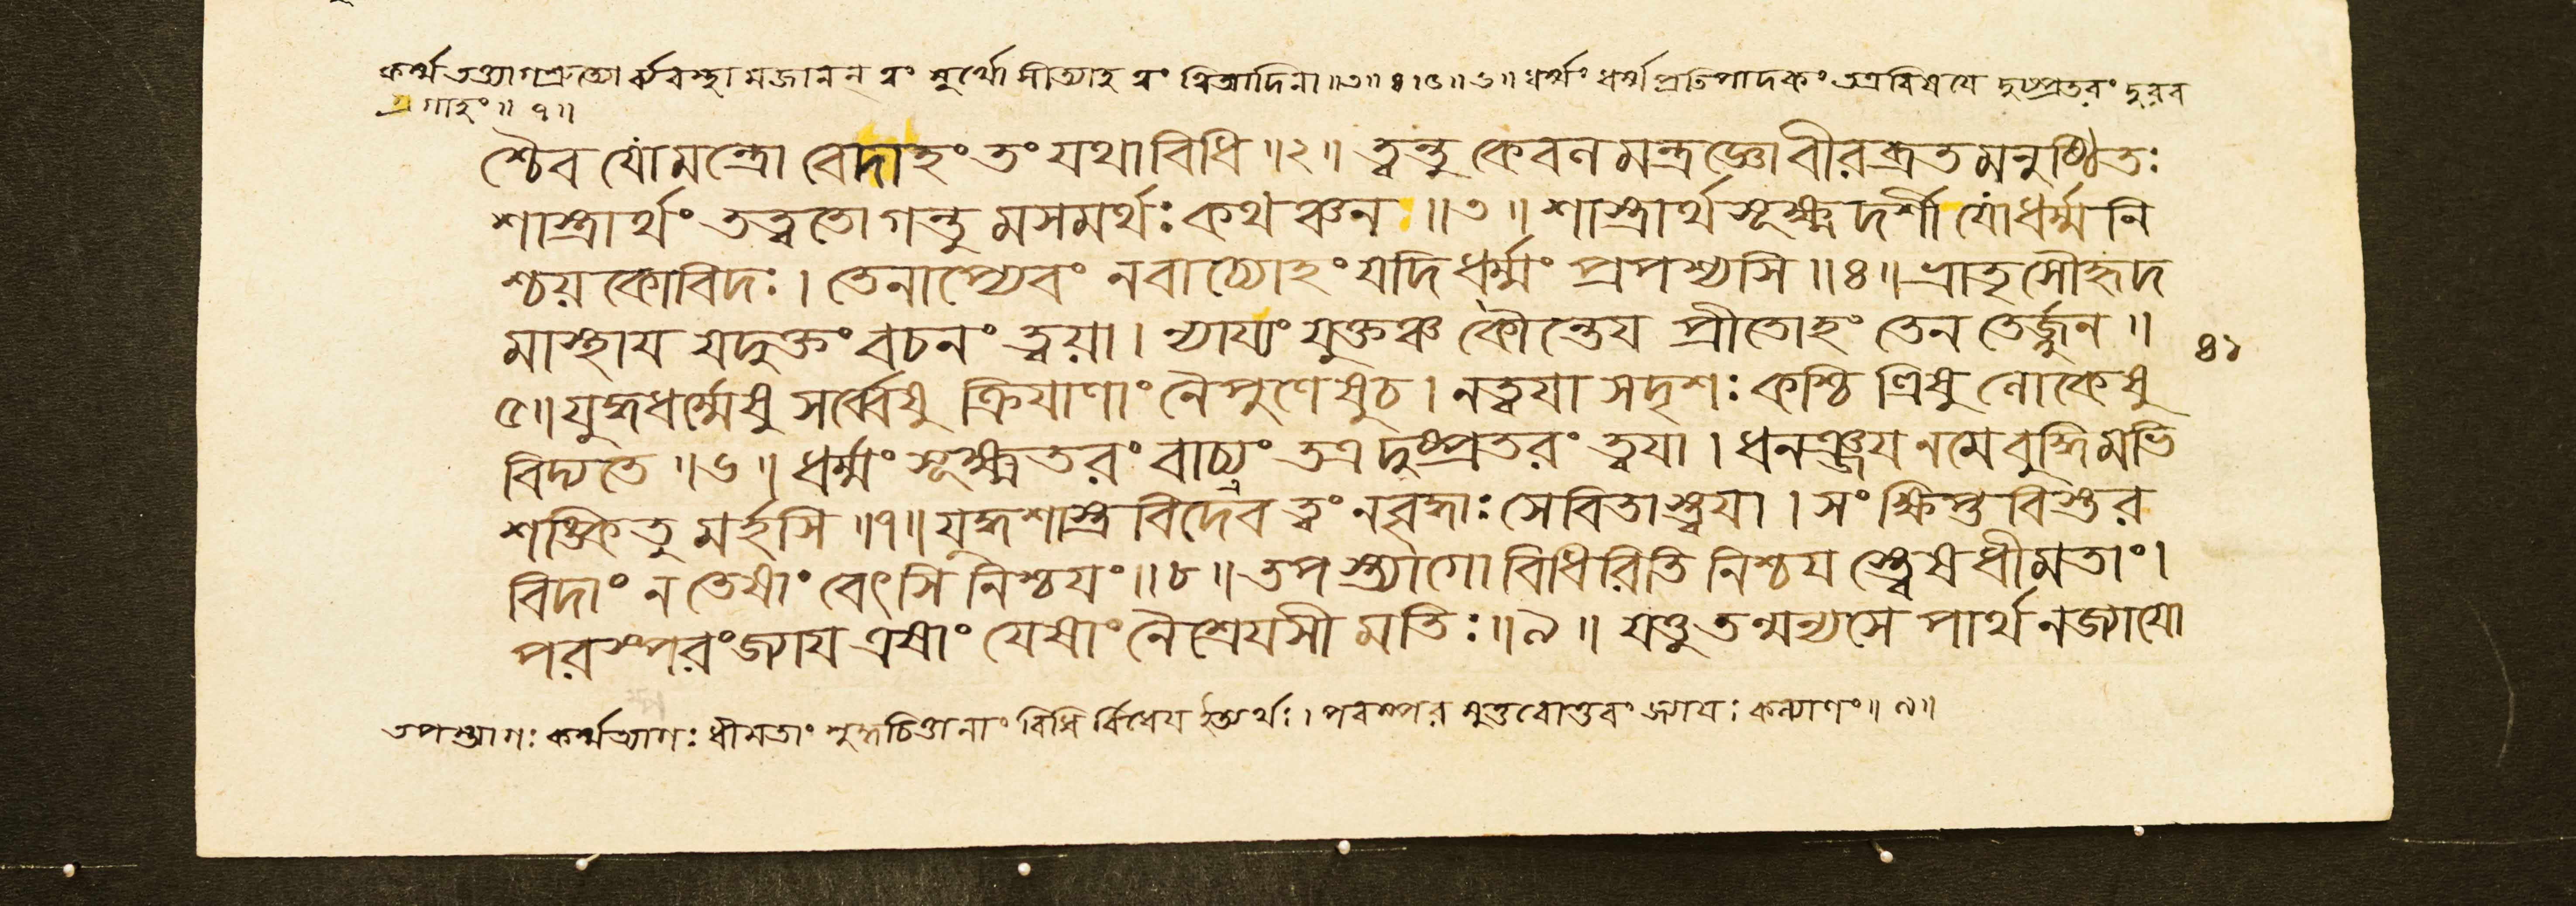 কর্ম্মতত্ত্যাগশ্রুত্যো র্ব্যবস্থা মজানন্ ত্বং মূর্খো সীত্যাহ ত্বং ত্বিত্যাদিনা ॥৩॥ ৪।৫॥ ৬॥ ধর্ম্মং ধর্ম্মপ্রতিপাদকং তত্রবিষযে দুষ্প্রতরং দুরব
গাহং॥ ৭॥
শ্চৈব যোমন্ত্রো বেদাহং তং যথাবিধি ॥২॥ ত্বন্তু কেবল মন্ত্রজ্ঞোবীরব্রত মনুষ্ঠিতঃ
শাস্ত্রার্থং তত্ত্বতো গন্তু মসমর্থঃ কথঞ্চন ॥৩॥ শাস্ত্রার্থ সূক্ষ্মদর্শী যোধর্ম্ম নি
শ্চয় কোবিদঃ। তেনাপ্যেবং নবাচ্যোহং যদি ধর্ম্মং প্রপশ্যসি ॥৪॥ ভ্রাতৃসৌহৃদ
মাস্থায যদুক্তং বচনং ত্বয়া। ন্যায্যং যুক্তঞ্চ কৌন্তেয প্রীতোহং তেন তের্জ্জুন ॥
৪১
৫॥ যুদ্ধধর্ম্মেষু সর্ব্বেষু ক্রিযাণাং নৈপুণেষুচ। নত্বযা সদৃশঃ কশ্চি ত্রিষু লোকেষু
বিদ্যতে ॥৬॥ ধর্ম্মং সূক্ষ্মতরং বাচ্যং তত্র দুষ্প্রতরং ত্বযা। ধনঞ্জয নমে বুদ্ধিমভি
শঙ্কিতু মর্হসি ॥৭॥ যুদ্ধশাস্ত্র বিদেব ত্বং নবৃদ্ধাঃ সেবিতাস্ত্বযা। সংক্ষিপ্ত বিস্তর
বিদাং ন তেষাং বেৎসি নিশ্চযং ॥৮॥ তপ স্ত্যাগো বিধিরিতি নিশ্চয স্ত্বেষ ধীমতাং।
পরস্পরং জ্যায এষাং যেষাং নৈশ্রেযসী মতিঃ ॥৯॥ যত্তু তন্মন্যসে পার্থ নজ্যাযো
তপস্ত্যাগঃ কর্ম্মত্যাগঃ ধীমতাং শুদ্ধচিত্তানাং বিধি র্বিধেয ইত্যর্থঃ। পরস্পর মুত্তরোত্তরং জ্যাযঃ কল্যাণং॥ ৯॥